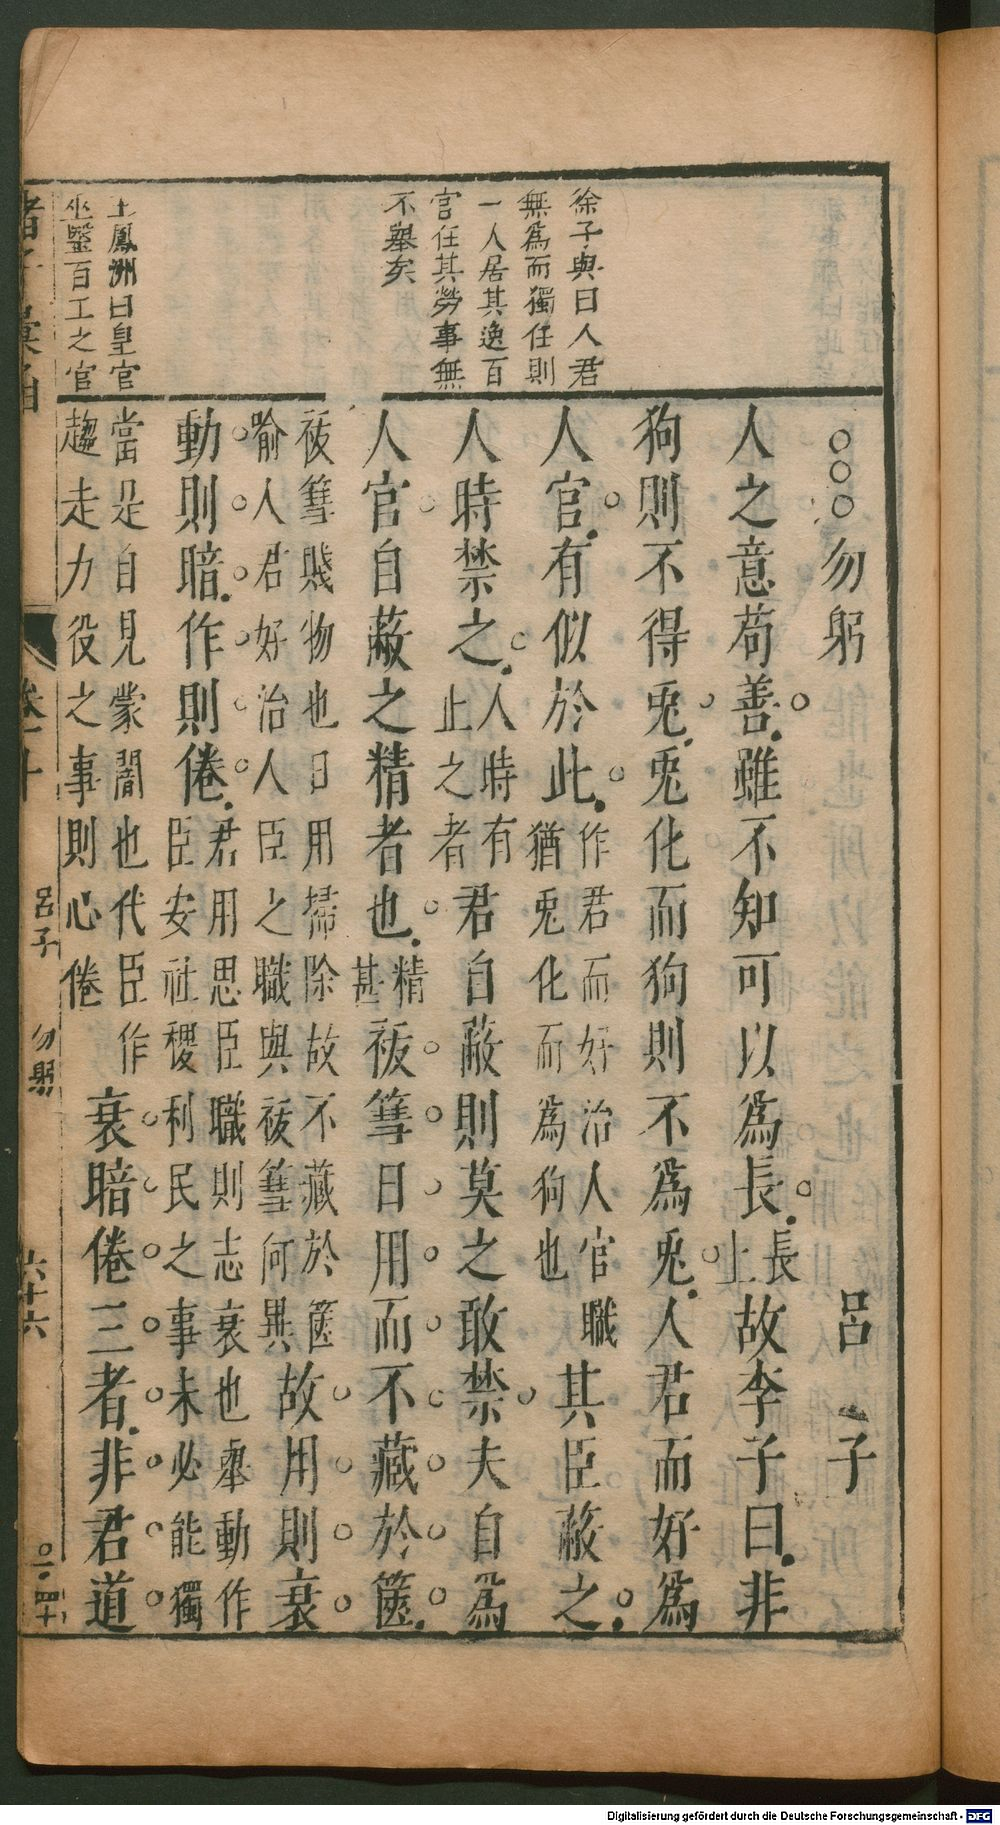 徐子與曰人君
無爲而獨任則
一人居其逸百
官任其勞事無
不舉矣
王鳳洲曰皇官
坐暨百工之官
○○○勿躬 呂子
人之意苟善雖不知可以爲長長上故李子曰非
狗則不得兎兎化而狗則不爲兎人君而好爲
人官有似於此作君而好治人官職猶兎化而爲狗也其臣蔽之
人時禁之人時有止之者君自蔽則莫之敢禁夫自爲
人官自蔽之精者也精甚祓篲日用而不藏於篋
祓篲賤物也日用掃除故不藏於篋喻人君好治人臣之職與祓篲何異故用則衰
動則暗作則倦君用思臣職則志衰也舉動作臣安社稷利民之事未必能獨
當是自見蒙闇也代臣作趨走力役之事則心倦衰暗倦三者非君道
諸子彙函 卷十 呂子 勿躬 六十六
Digitalisierung gefördert durch die Deutsche Forschungsgemeinschaft - DFG